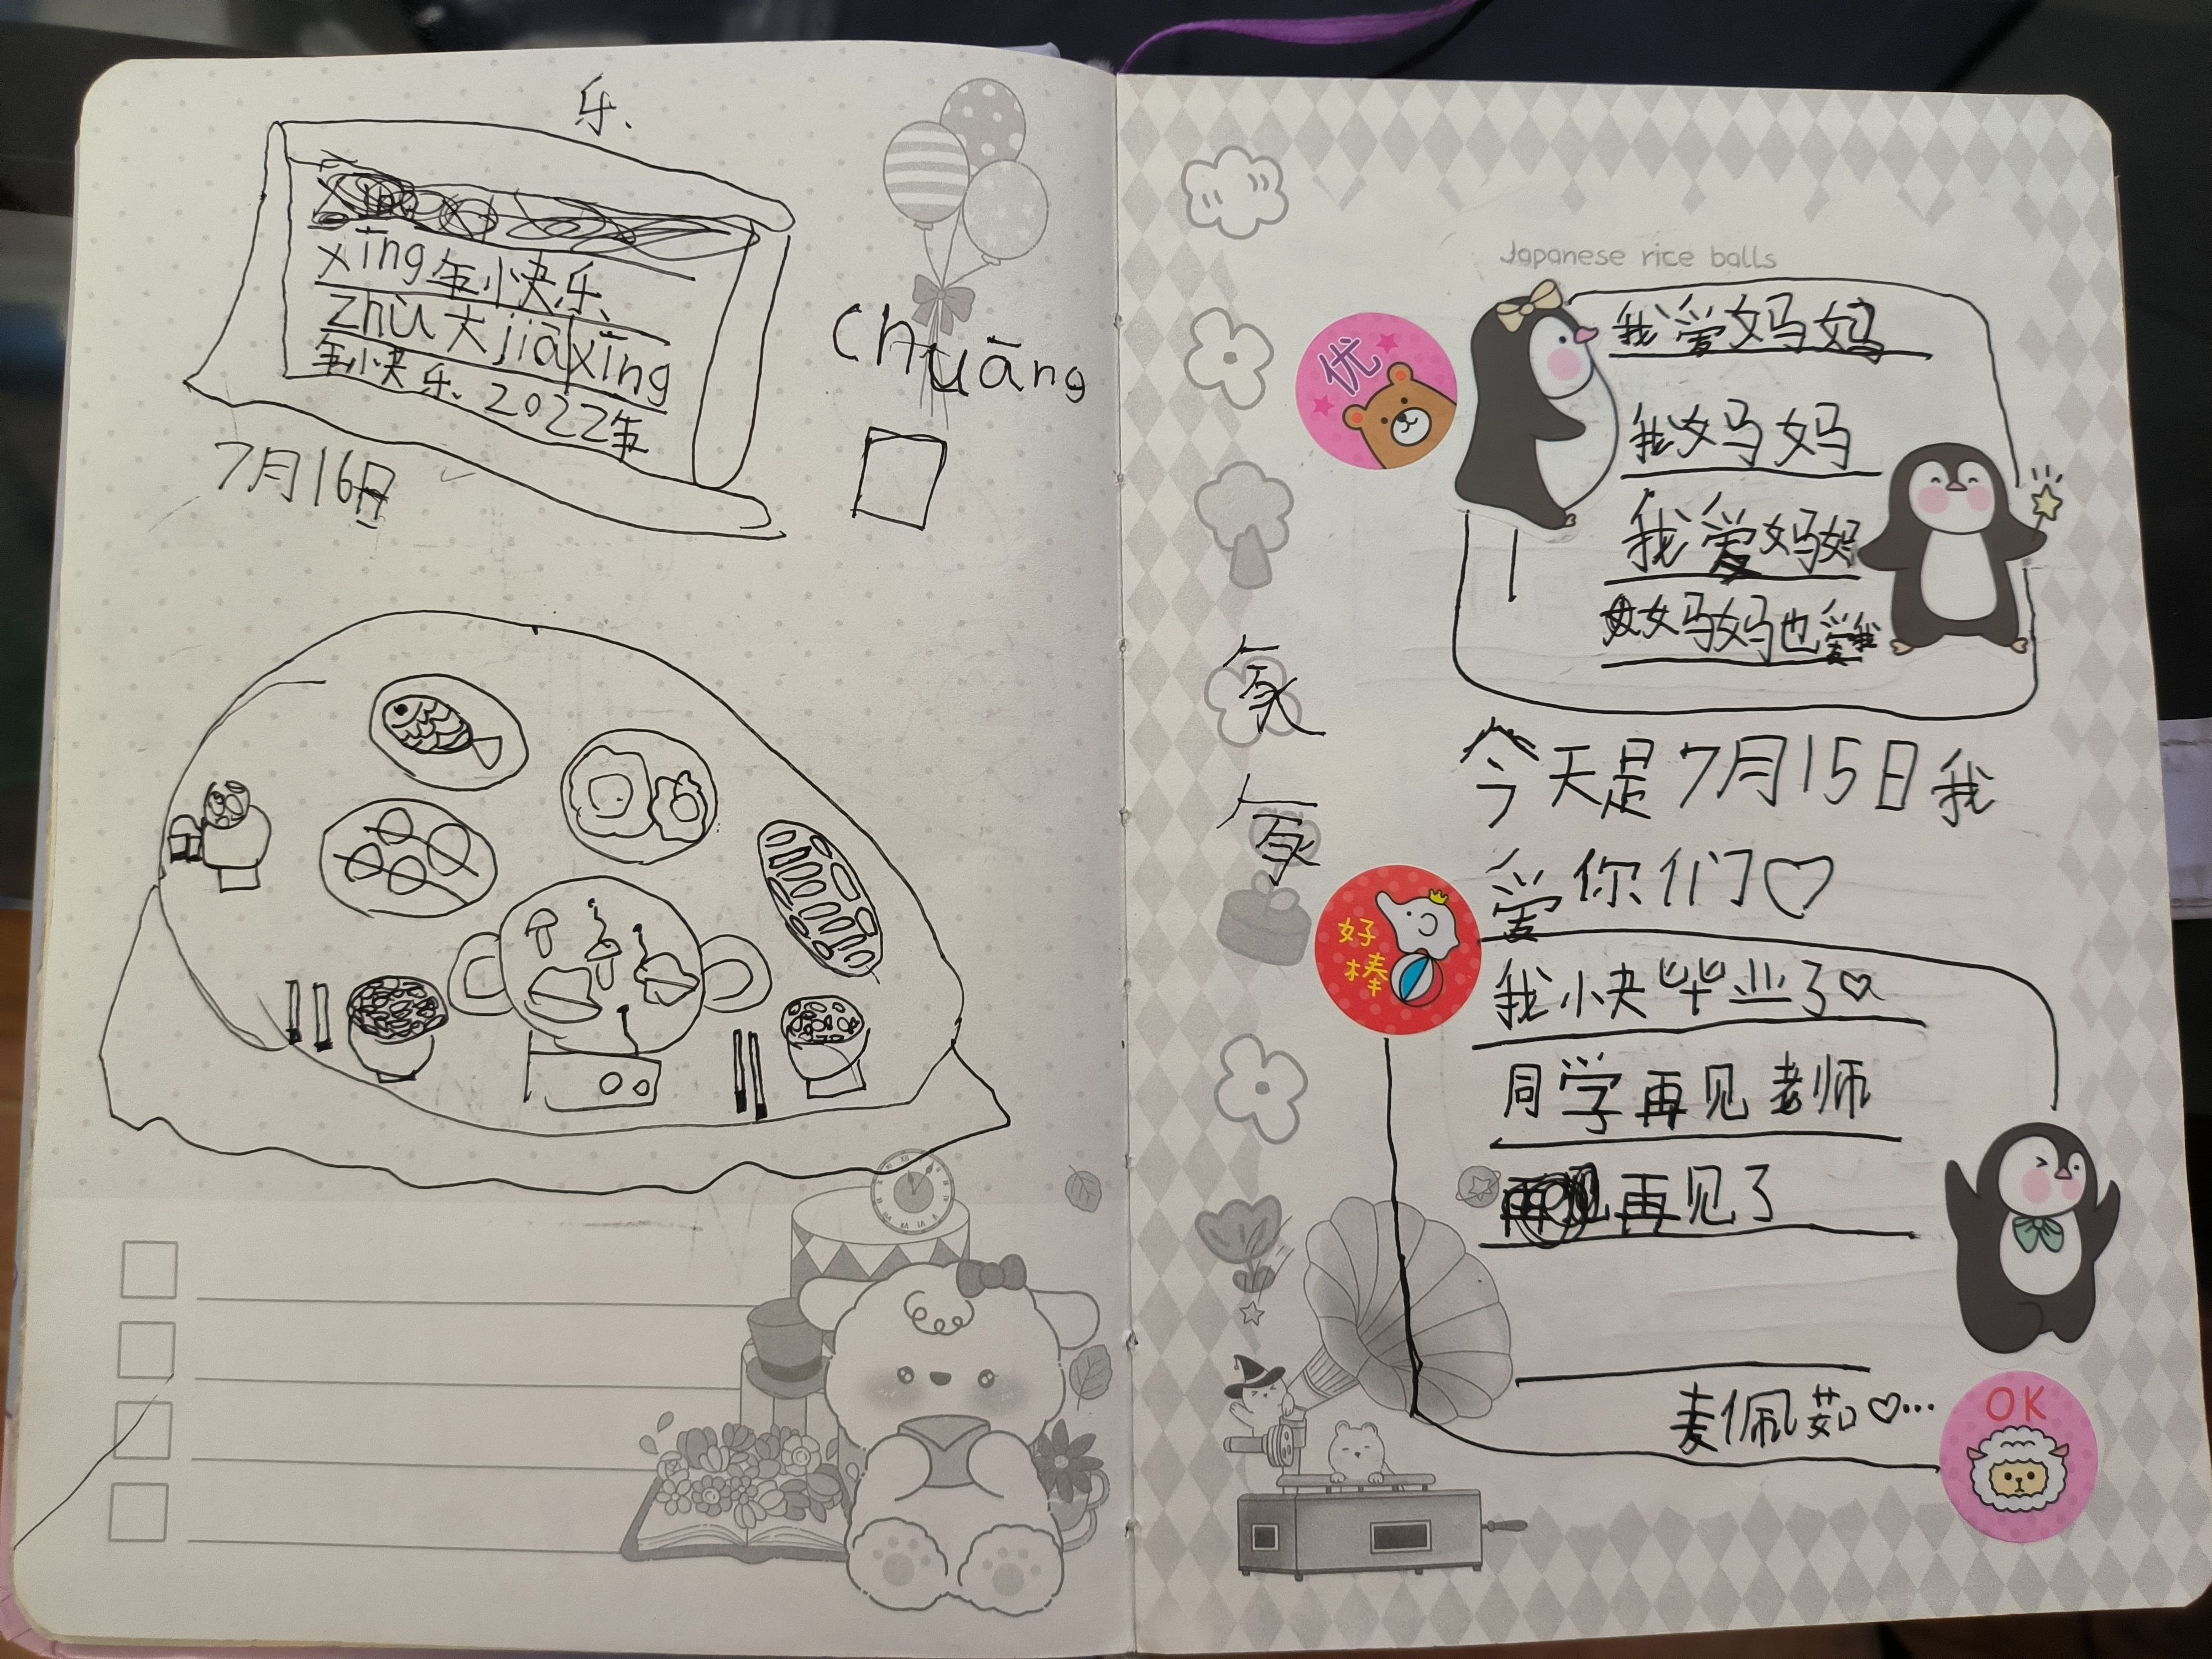 乐、
xīng年快乐、
zhù大jiāxīng
年快乐、2022年
7月16日
chuāng
Japanese rice balls
优
我爱妈妈
我妈妈
我爱妈妈
妈妈也爱我
今天是7月15日我
爱你们♡
好棒
我快毕业了♡
同学再见老师
再见了
麦佩茹♡…
OK